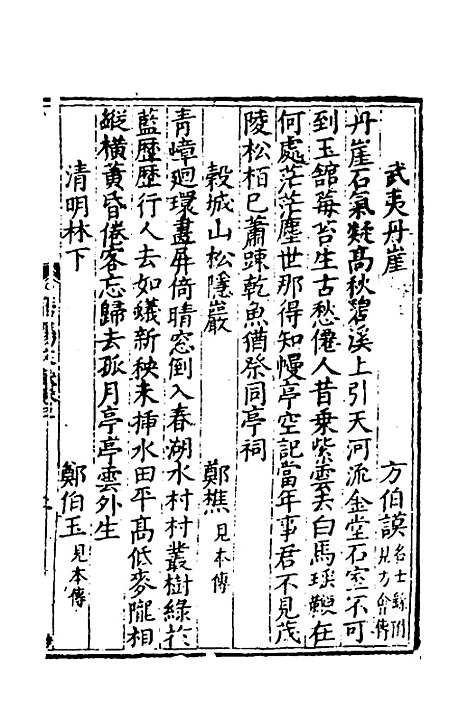 武夷丹崖　方伯謨名士錄附見方會傳
丹崖石氣凝高秋碧溪上引天河流金堂石室不可
到玉館莓苔生古愁僊人昔乗紫雲去白馬瑤鞭在
何處茫茫塵世那得知慢亭空記當年事君不見茂
陵松栢已蕭踈乾魚猶祭同亭祠
榖城山松隱巖　鄭樵見本傳
青嶂廻環畫屏倚晴窓倒入春湖水村村叢樹綠於
藍歴歴行人去如蟻新秧未挿水田平髙低麥隴相
縱横黄昏倦客忘歸去孤月亭亭雲外生
清明林下　鄭伯玉見本傳